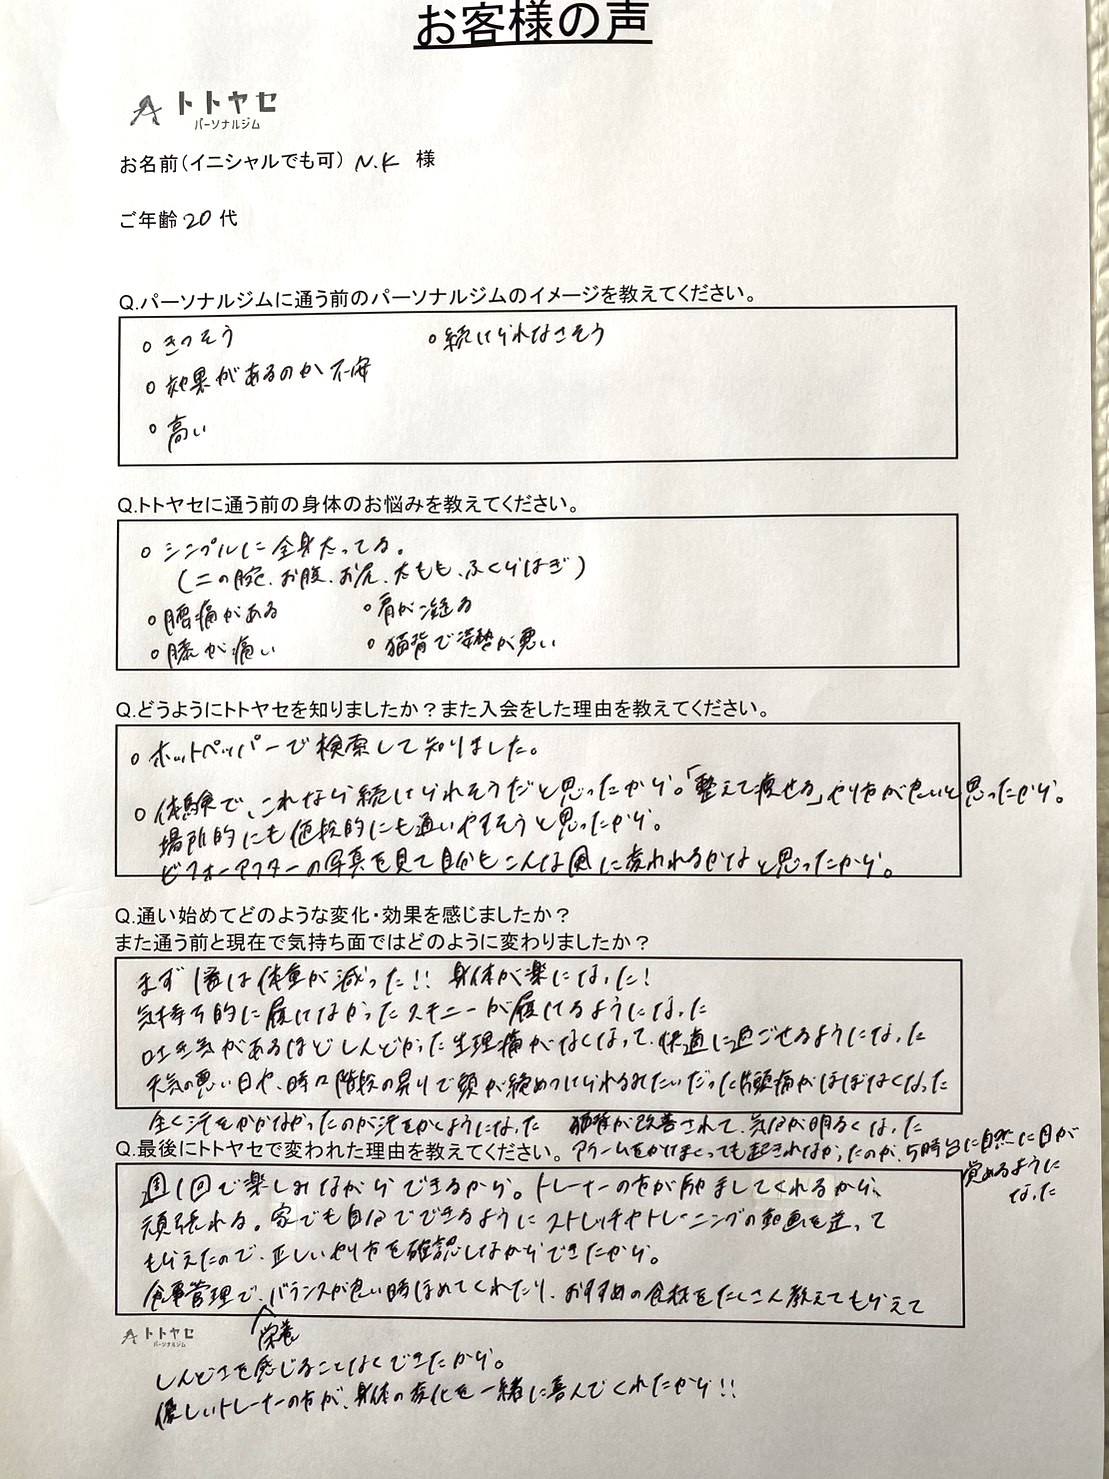 お客様の声
トトヤセ
パーソナルジム
お名前（イニシャルでも可） N.K 様
ご年齢 20 代
Q.パーソナルジムに通う前のパーソナルジムのイメージを教えてください。
○ きつそう ○ 続けられなさそう
○ 効果があるのか不安
○ 高い
Q.トトヤセに通う前の身体のお悩みを教えてください。
○ シンプルに全身太ってる。
(二の腕、お腹、お尻、太もも、ふくらはぎ)
○ 腰痛がある ○ 肩が凝る
○ 膝が痛い ○ 猫背で姿勢が悪い
Q.どうようにトトヤセを知りましたか？また入会をした理由を教えてください。
○ ホットペッパーで検索して知りました。
○ 体験で、これなら続けられそうだと思ったから。「整えて痩せる」やり方が良いと思ったから。
場所的にも値段的にも通いやすそうと思ったから。
ビフォーアフターの写真を見て自分もこんな風に変われるかなと思ったから。
Q.通い始めてどのような変化・効果を感じましたか？
また通う前と現在で気持ち面ではどのように変わりましたか？
まず1番は体重が減った!! 身体が楽になった!
気持ち的に履けなかったスキニーが履けるようになった
吐き気があるほどしんどかった生理痛がなくなって、快適に過ごせるようになった
天気の悪い日や、時に階段の昇りで頭が締めつけられるみたいだった片頭痛がほぼなくなった
全く汗をかかなかったのが汗をかくようになった 猫背が改善されて、気分が明るくなった
アラームをかけまくっても起きれなかったのが、5時台に自然に目が
覚めるように
なった
Q.最後にトトヤセで変われた理由を教えてください。
週1回で楽しみながらできるから。トレーナーの方が励ましてくれるから、
頑張れる。家でも自分でできるようにストレッチやトレーニングの動画を送って
もらえたので、正しいやり方を確認しながらできたから。
食事管理で、栄養バランスが良い時ほめてくれたり、おすすめの食材をたくさん教えてもらえて
トトヤセ
パーソナルジム
しんどさを感じることなくできたから。
優しいトレーナーの方が、身体の変化を一緒に喜んでくれたから!!